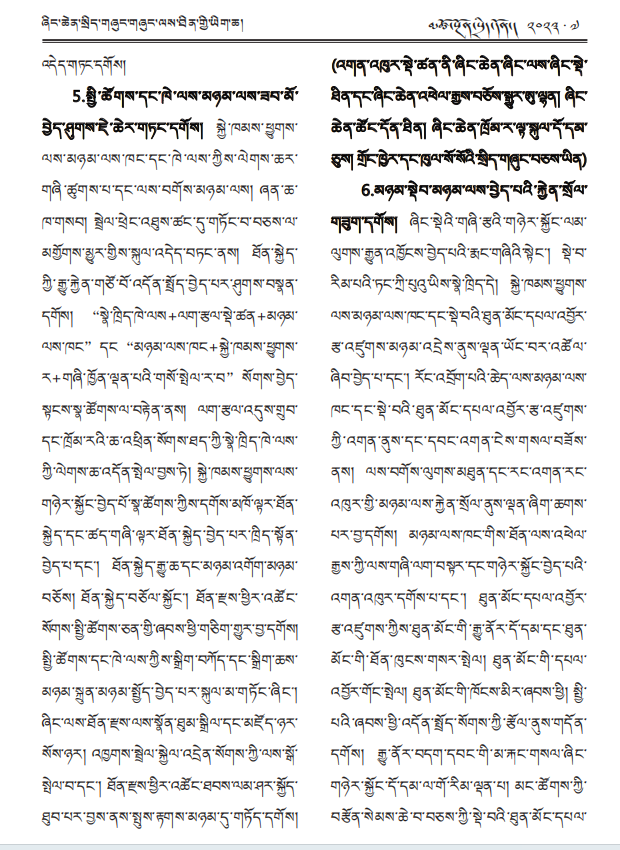 ཞིང་ཆེན་སྲིད་གཞུང་གཞུང་ལས་ཐིན་གྱི་ཡིག་ཆ།
༢༠༢༣ · ༧
འདེད་གཏང་དགོས།
5.སྤྱི་ཚོགས་དང་ཁེ་ལས་མཉམ་ལས་ཟབ་མོ་
བྱེད་ཤུགས་ཇེ་ཆེར་གཏང་དགོས། སྐྱེ་ཁམས་ཕྱུགས་
ལས་མཉམ་ལས་ཁང་དང་ཁེ་ལས་ཀྱིས་ལེགས་ཆར་
གཞི་ཚུགས་པ་དང་ལས་བགོས་མཉམ་ལས། ཞན་ཆ་
ཁ་གསབ། སྦྲེལ་ཕྲེང་འཐུས་ཚང་དུ་གཏོང་བ་བཅས་ལ་
མགྱོགས་མྱུར་གྱིས་སྐུལ་འདེད་བཏང་ནས། ཐོན་སྐྱེད་
ཀྱི་རྒྱུ་རྐྱེན་གཙོ་བོ་འདོན་སྤྲོད་བྱེད་པར་ཤུགས་བསྣན་
དགོས། “སྣེ་ཁྲིད་ཁེ་ལས+ལག་རྩལ་སྡེ་ཚན+མཉམ་
ལས་ཁང” དང “མཉམ་ལས་ཁང+སྐྱེ་ཁམས་ཕྱུགས་
ར+གཞི་ཁྱོན་ལྡན་པའི་གསོ་སྤེལ་ར་བ” སོགས་བྱེད་
སྟངས་སྣ་ཚོགས་ལ་བརྟེན་ནས། ལག་རྩལ་འདུས་གྲུབ་
དང་ཁྲོམ་རའི་ཆ་འཕྲིན་སོགས་ཐད་ཀྱི་སྣེ་ཁྲིད་ཁེ་ལས་
ཀྱི་ལེགས་ཆ་འདོན་སྤེལ་བྱས་ཏེ། སྐྱེ་ཁམས་ཕྱུགས་ལས་
གཉེར་སྐྱོང་བྱེད་པོ་སྣ་ཚོགས་ཀྱིས་དགོས་མཁོ་ལྟར་ཐོན་
སྐྱེད་དང་ཚད་གཞི་ལྟར་ཐོན་སྐྱེད་བྱེད་པར་ཁྲིད་སྟོན་
བྱེད་པ་དང་། ཐོན་སྐྱེད་རྒྱུ་ཆ་དང་མཉམ་འགོག་མཉམ་
བཅོས། ཐོན་སྐྱེད་བཅོལ་སྐྱོང་། ཐོན་རྫས་ཕྱིར་འཚོང་
སོགས་སྤྱི་ཚོགས་ཅན་གྱི་ཞབས་ཕྱི་གཅིག་གྱུར་བྱ་དགོས།
སྤྱི་ཚོགས་དང་ཁེ་ལས་ཀྱིས་སྒྲིག་བཀོད་དང་སྒྲིག་ཆས་
མཉམ་སྐྲུན་མཉམ་སྤྱོད་བྱེད་པར་སྐུལ་མ་གཏོང་ཞིང་།
ཞིང་ལས་ཐོན་རྫས་ལས་སྣོན་ཐུམ་སྒྲིལ་དང་མཛོད་ཉར་
སོས་ཉར། འཁྱགས་སྦྲེལ་སྐྱེལ་འདྲེན་སོགས་ཀྱི་ལས་སྒོ་
སྤེལ་བ་དང་། ཐོན་རྫས་ཕྱིར་འཚོང་ཐབས་ལམ་ཤར་སྐྱོད་
ཐུབ་པར་བྱས་ནས་སྤུས་རྟགས་མཉམ་དུ་གཏོད་དགོས།
(འགན་འཁུར་སྡེ་ཚན་ནི་ཞིང་ཆེན་ཞིང་ལས་ཞིང་སྡེ་
ཐིན་དང་ཞིང་ཆེན་འཕེལ་རྒྱས་བཅོས་སྒྱུར་ཨུ་ལྷན། ཞིང་
ཆེན་ཚོང་དོན་ཐིན། ཞིང་ཆེན་ཁྲོམ་ར་ལྟ་སྐུལ་དོ་དམ་
ཅུས། གྲོང་ཁྱེར་དང་ཁུལ་སོ་སོའི་སྲིད་གཞུང་བཅས་ཡིན)
6.མཉམ་སྡེབ་མཉམ་ལས་བྱེད་པའི་རྐྱེན་སྲོལ་
གཟུག་དགོས། ཞིང་སྡེའི་གཞི་རྩའི་གཉེར་སྐྱོང་ལམ་
ལུགས་རྒྱུན་འཁྱོངས་བྱེད་པའི་རྨང་གཞིའི་སྟེང་། སྡེ་བ་
རིམ་པའི་ཏང་ཀྲི་པུའུ་ཡིས་སྣེ་ཁྲིད་དེ། སྐྱེ་ཁམས་ཕྱུགས་
ལས་མཉམ་ལས་ཁང་དང་སྡེ་བའི་ཐུན་མོང་དཔལ་འབྱོར་
རྩ་འཛུགས་མཉམ་འདྲེས་ནུས་ལྡན་ཡོང་བར་འཚོལ་
ཞིབ་བྱེད་པ་དང་། རོང་འབྲོག་པའི་ཆེད་ལས་མཉམ་ལས་
ཁང་དང་སྡེ་བའི་ཐུན་མོང་དཔལ་འབྱོར་རྩ་འཛུགས་
ཀྱི་འགན་ནུས་དང་དབང་འགན་ངེས་གསལ་བཟོས་
ནས། ལས་བགོས་ལུགས་མཐུན་དང་རང་འགན་རང་
འཁུར་གྱི་མཉམ་ལས་རྐྱེན་སྲོལ་ནུས་ལྡན་ཞིག་ཆགས་
པར་བྱ་དགོས། མཉམ་ལས་ཁང་གིས་ཐོན་ལས་འཕེལ་
རྒྱས་ཀྱི་ལས་གཞི་ལག་བསྟར་དང་གཉེར་སྐྱོང་བྱེད་པའི་
འགན་འཁུར་དགོས་པ་དང་། ཐུན་མོང་དཔལ་འབྱོར་
རྩ་འཛུགས་ཀྱིས་ཐུན་མོང་གི་རྒྱུ་ནོར་དོ་དམ་དང་ཐུན་
མོང་གི་ཐོན་ཁུངས་གསར་སྤེལ། ཐུན་མོང་གི་དཔལ་
འབྱོར་གོང་སྤེལ། ཐུན་མོང་གི་ཁོངས་མིར་ཞབས་ཕྱི། སྤྱི་
པའི་ཞབས་ཕྱི་འདོན་སྤྲོད་སོགས་ཀྱི་རྩོལ་ནུས་གདོན་
དགོས། རྒྱུ་ནོར་བདག་དབང་གི་མ་རྐང་གསལ་ཞིང་
གཉེར་སྐྱོང་དོ་དམ་ལ་གོ་རིམ་ལྡན་པ། མང་ཚོགས་ཀྱི་
བརྩོན་སེམས་ཆེ་བ་བཅས་ཀྱི་སྡེ་བའི་ཐུན་མོང་དཔལ་